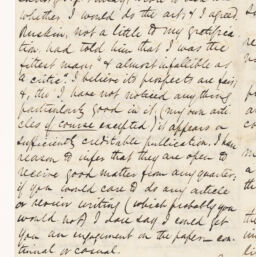 whether I would do the art; & I agreed
Ruskin, not a little to my gratifica-
tion had told him that I was the
fittest man & almost infallible as
a critic". I believe its prospects are fair
&, tho' I have not noticed anything
particularly good in it (my own arti-
cles of course excepted) it appears a
sufficiently creditable publication. I have
reason to infer that they are open to
receive good matter from any quarter.
if you would care to do any article
or review writing (which probably you
would not) I dare say I could get
you an engagement on the paper—con-
tinual or casual.